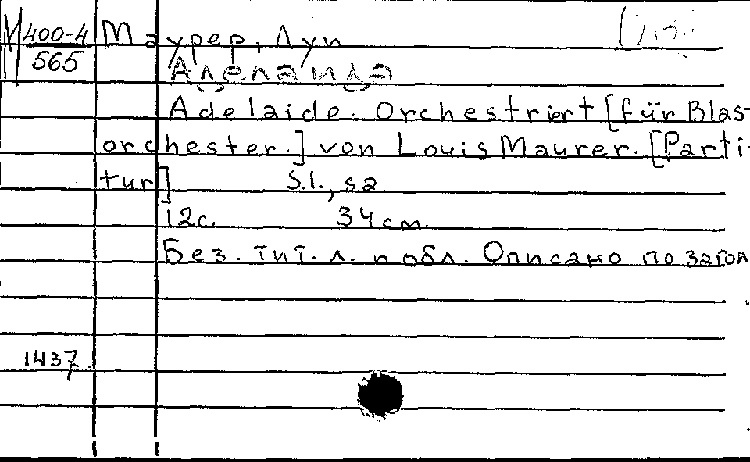 М 400-4 Маурер, Луи
565 Аделаида
Adelaide. Orchestriert [für Blas-
orchester.] von Louis Maurer. [Parti-
tur] S.l., s a
12с. 34 см
Без. тит. л. и обл. Описано по загол
1437